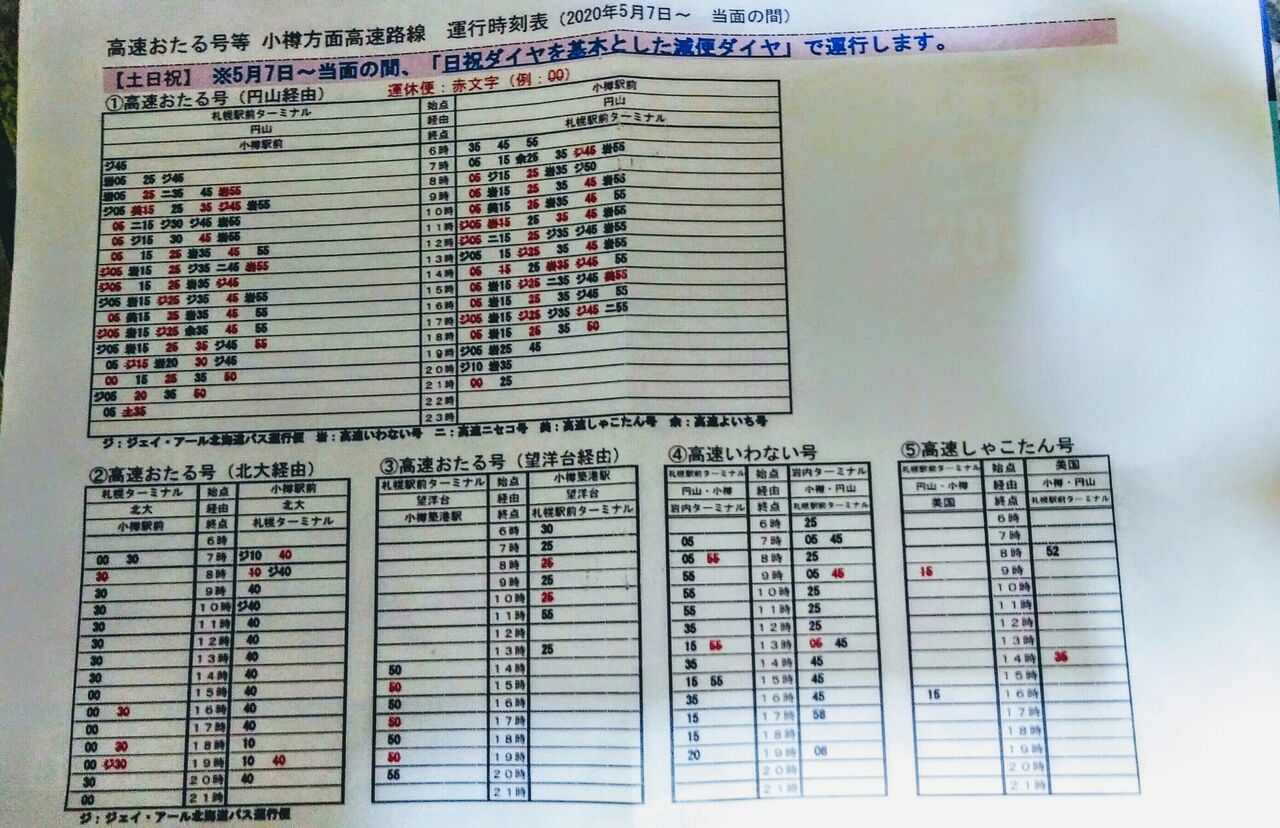 高速おたる号等 小樽方面高速路線 運行時刻表（2020年5月7日～ 当面の間）
【土日祝】 ※5月7日～当面の間、「日祝ダイヤを基本とした減便ダイヤ」で運行します。
①高速おたる号（円山経由） 運休便：赤文字（例：00）
札幌駅前ターミナル 始点 小樽駅前
円山 経由 円山
小樽駅前 終点 札幌駅前ターミナル
ジ45 6時 35 45 55
岩05 25 ジ45 7時 05 15 余25 35 ジ45 岩55
岩05 25 ニ35 45 岩55 8時 05 ジ15 25 岩35 ジ50
ジ05 美15 25 35 ジ45 岩55 9時 05 岩15 25 35 45 岩55
05 ニ15 ジ30 ジ45 岩55 10時 05 美15 25 岩35 45 55
05 ジ15 30 45 岩55 11時 ジ05 岩15 25 35 45 岩55
05 15 25 岩35 45 55 12時 ジ05 ニ15 25 ジ35 ジ45 岩55
ジ05 岩15 25 ジ35 ニ45 岩55 13時 ジ05 15 ジ25 35 45 岩55
ジ05 15 25 岩35 ジ45 14時 05 15 25 岩35 ジ45 55
ジ05 岩15 ジ25 ジ35 45 岩55 15時 05 岩15 ジ25 ニ35 ジ45 美55
05 美15 25 岩35 45 55 16時 05 岩15 25 35 ジ45 55
ジ05 岩15 ジ25 余35 45 55 17時 ジ05 岩15 ジ25 ジ35 ジ45 ニ55
ジ05 岩15 25 35 ジ45 55 18時 05 岩15 25 35 50
05 ジ15 岩20 30 ジ45 19時 ジ05 岩25 45
00 15 25 35 50 20時 ジ10 岩35
ジ05 20 35 50 21時 00 25
05 土35 22時
23時
ジ：ジェイ・アール北海道バス運行便 岩：高速いわない号 ニ：高速ニセコ号 美：高速しゃこたん号 余：高速よいち号
②高速おたる号（北大経由）
札幌ターミナル 始点 小樽駅前
北大 経由 北大
小樽駅前 終点 札幌ターミナル
6時
00 30 7時 ジ10 40
30 8時 10 ジ40
30 9時 40
30 10時 ジ40
30 11時 40
30 12時 40
30 13時 40
30 14時 40
00 15時 40
00 30 16時 40
00 17時 40
00 30 18時 10
00 ジ30 19時 10 40
30 20時 40
00 21時
ジ：ジェイ・アール北海道バス運行便
③高速おたる号（望洋台経由）
札幌駅前ターミナル 始点 小樽築港駅
望洋台 経由 望洋台
小樽築港駅 終点 札幌駅前ターミナル
6時 30
7時 25
8時 25
9時 25
10時 25
11時 55
12時
13時 25
50 14時
50 15時
50 16時
50 17時
50 18時
50 19時
55 20時
21時
④高速いわない号
札幌駅前ターミナル 始点 岩内ターミナル
円山・小樽 経由 小樽・円山
岩内ターミナル 終点 札幌駅前ターミナル
6時 25
05 7時 05 45
05 55 8時 25
55 9時 05 45
55 10時 25
55 11時 25
35 12時 25
15 55 13時 05 45
35 14時 45
15 55 15時 45
35 16時 45
15 17時 58
15 18時
20 19時 08
20時
21時
⑤高速しゃこたん号
札幌駅前ターミナル 始点 美国
円山・小樽 経由 小樽・円山
美国 終点 札幌駅前ターミナル
6時
7時
8時 52
15 9時
10時
11時
12時
13時
14時 35
15時
15 16時
17時
18時
19時
20時
21時